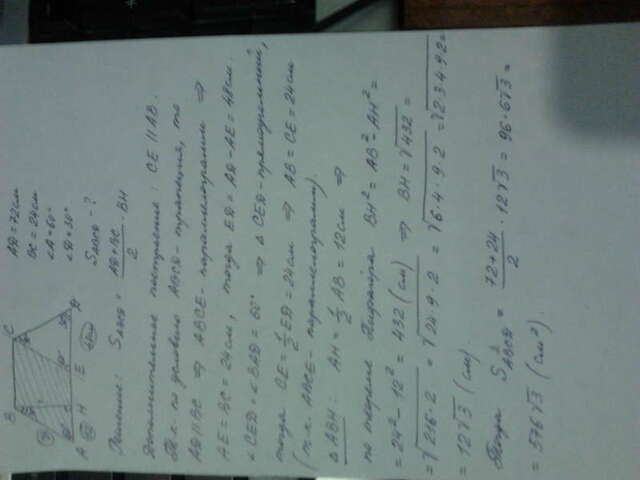 B C
A H E D
48см
AD = 72 см
BC = 24 см
∠A = 60°
∠D = 30°
S_ABCD - ?
Решение: S_ABCD = (AD + BC)/2 · BH
Дополнительное построение: CE || AB.
Т.к. по условию ABCD - трапеция, то
AD || BC ⇒ ABCE - параллелограмм ⇒
AE = BC = 24 см, тогда ED = AD - AE = 48 см.
∠CED = ∠BAD = 60° ⇒ △CED - прямоугольный,
тогда CE = 1/2 ED = 24 см ⇒ AB = CE = 24 см
(т.к. ABCE - параллелограмм).
△ABH: AH = 1/2 AB = 12 см ⇒
по теореме Пифагора BH² = AB² - AH² =
= 24² - 12² = 432 (см) ⇒ BH = √432 =
= √216·2 = √24·9·2 = √6·4·9·2 = √2·3·4·9·2 =
= 12√3 (см).
Тогда S_ABCD = (72+24)/2 · 12√3 = 96·6√3 =
= 576√3 (см²).